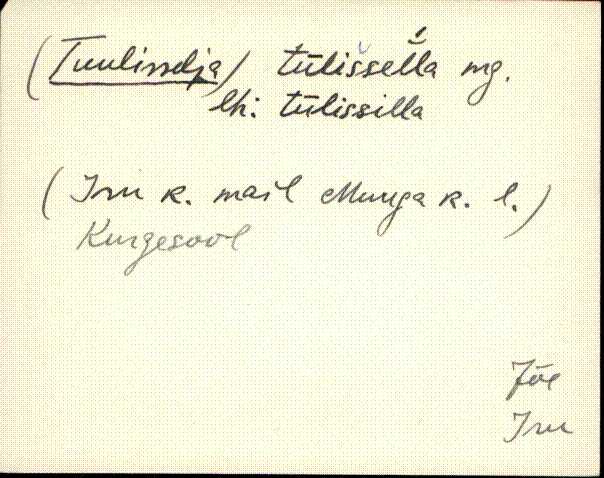 (Tuulisselja) tūlissella mg.
lh: tūlissilla
(Iru k. mail Muuga k. l.)
Kurgesool
Jõe
Iru